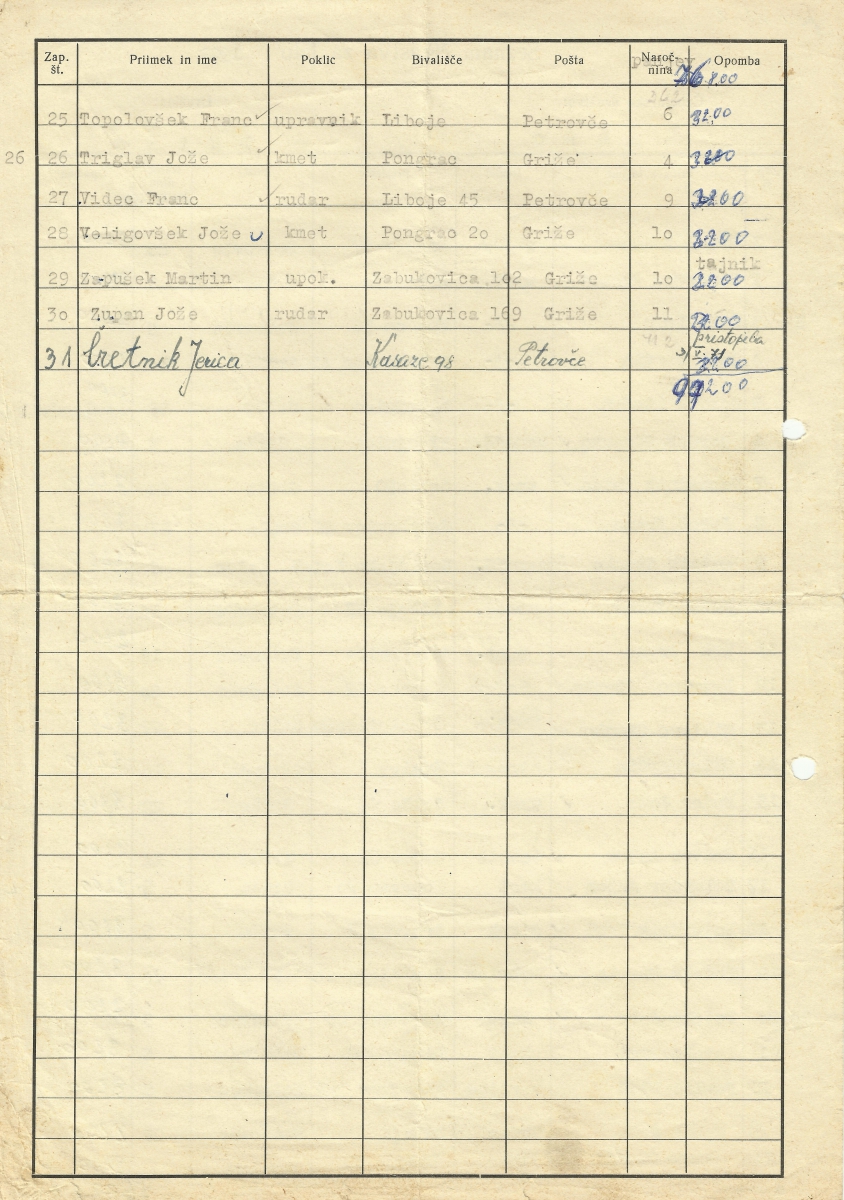 Zap. št. Priimek in ime Poklic Bivališče Pošta Naročnina Opomba
25 Topolovšek Franc upravnik Liboje Petrovče 6 32.00
26 26 Triglav Jože kmet Pongrac Griže 4
27 Videc Franc rudar Liboje 45 Petrovče 9 32.00
28 Veligovšek Jože kmet Pongrac 2o Griže lo 32.00
tajnik
29 Zapušek Martin upok. Zabukovica lo2 Griže lo 32.00
3o Zupan Jože rudar Zabukovica 169 Griže 11 32.00
pristopila
31 Čretnik Jerica Kasaze 98 Petrovče 32.00
992.00